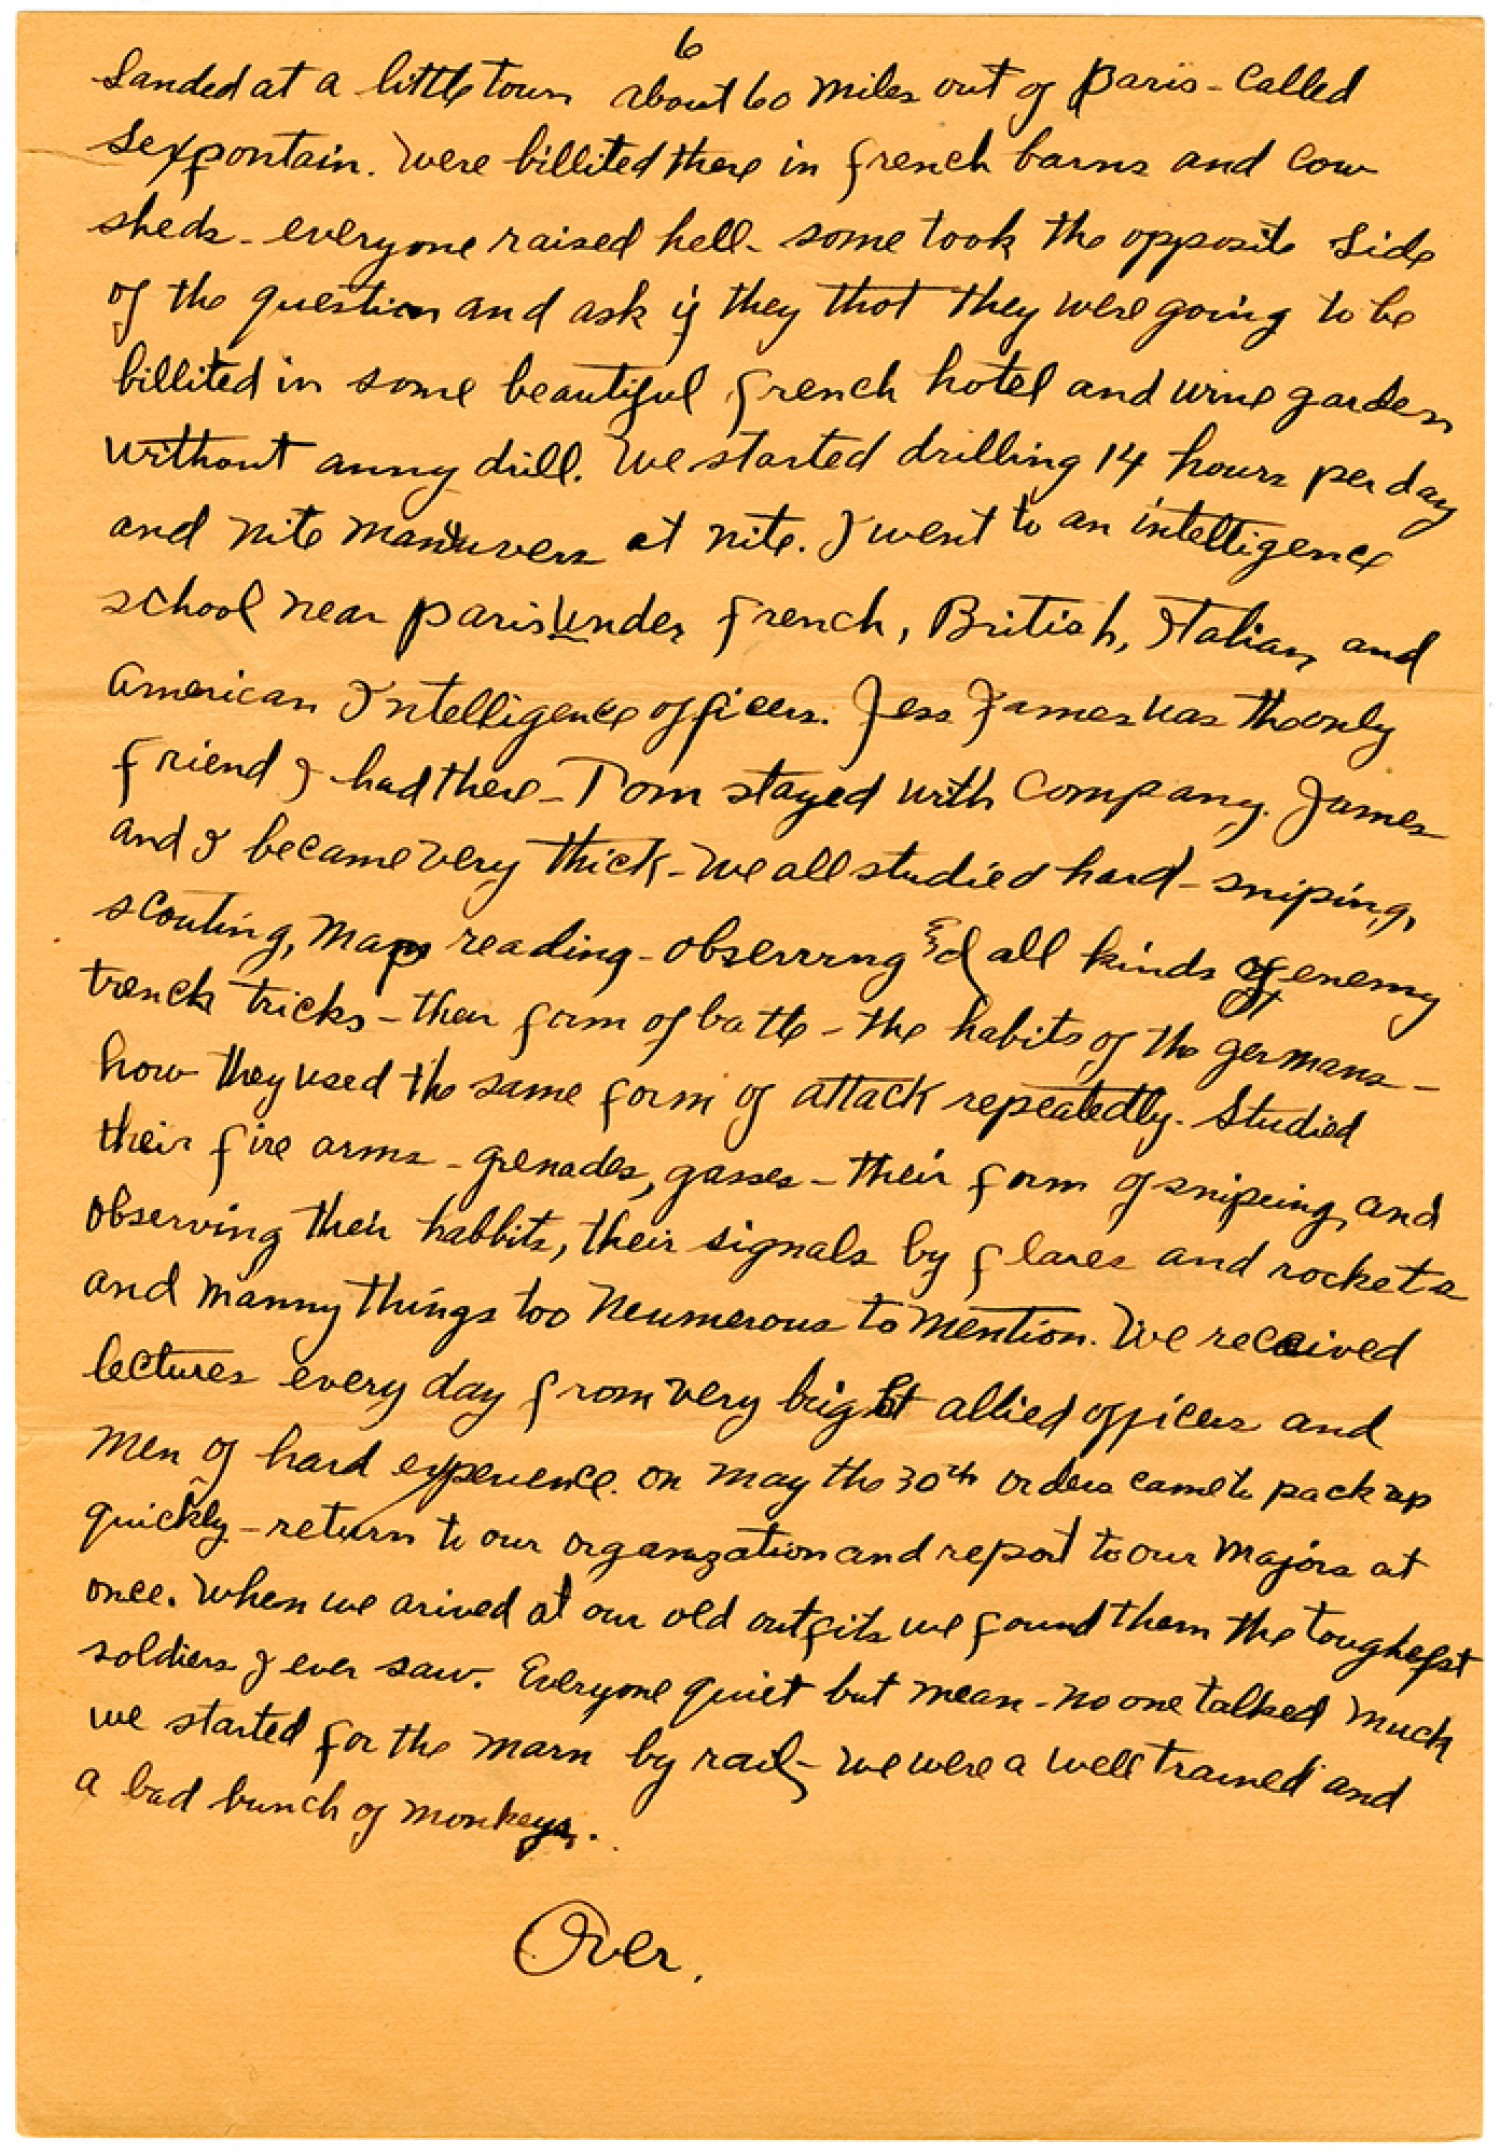 6
Landed at a little town about 60 miles out of Paris - Called
Sexpontain. Were billited there in french barns and Cow
sheds - everyone raised hell - some took the opposite side
of the question and ask if they thot they were going to be
billited in some beautiful french hotel and wine garden
without anny drill. We started drilling 14 hours per day
and nite manuvers at nite. I went to an intelligence
school near paris under french, British, Italian, and
American Intelligence officers. Jess James was the only
friend I had there - Tom stayed with Company. James
and I became very thick - we all studied hard - sniping,
scouting, map reading - observing & all kinds of enemy
trench tricks - their form of battle - the habits of the germans -
how they used the same form of attack repeatedly. Studied
their fire arms - grenades, gasses - their form of snipeing, and
observing their habbits, their signals by flares and rockets
and manny things too neumerous to mention. We received
lectures every day from very bright allied officers and
men of hard experience. on may the 30th orders came to pack up
quickly - return to our organization and report to our majors at
once. When we arived at our old outfits we found them the toughest
soldiers I ever saw. Everyone quiet but mean - no one talked much
we started for the marn by rail - we were a well trained and
a bad bunch of monkeys.
Over.